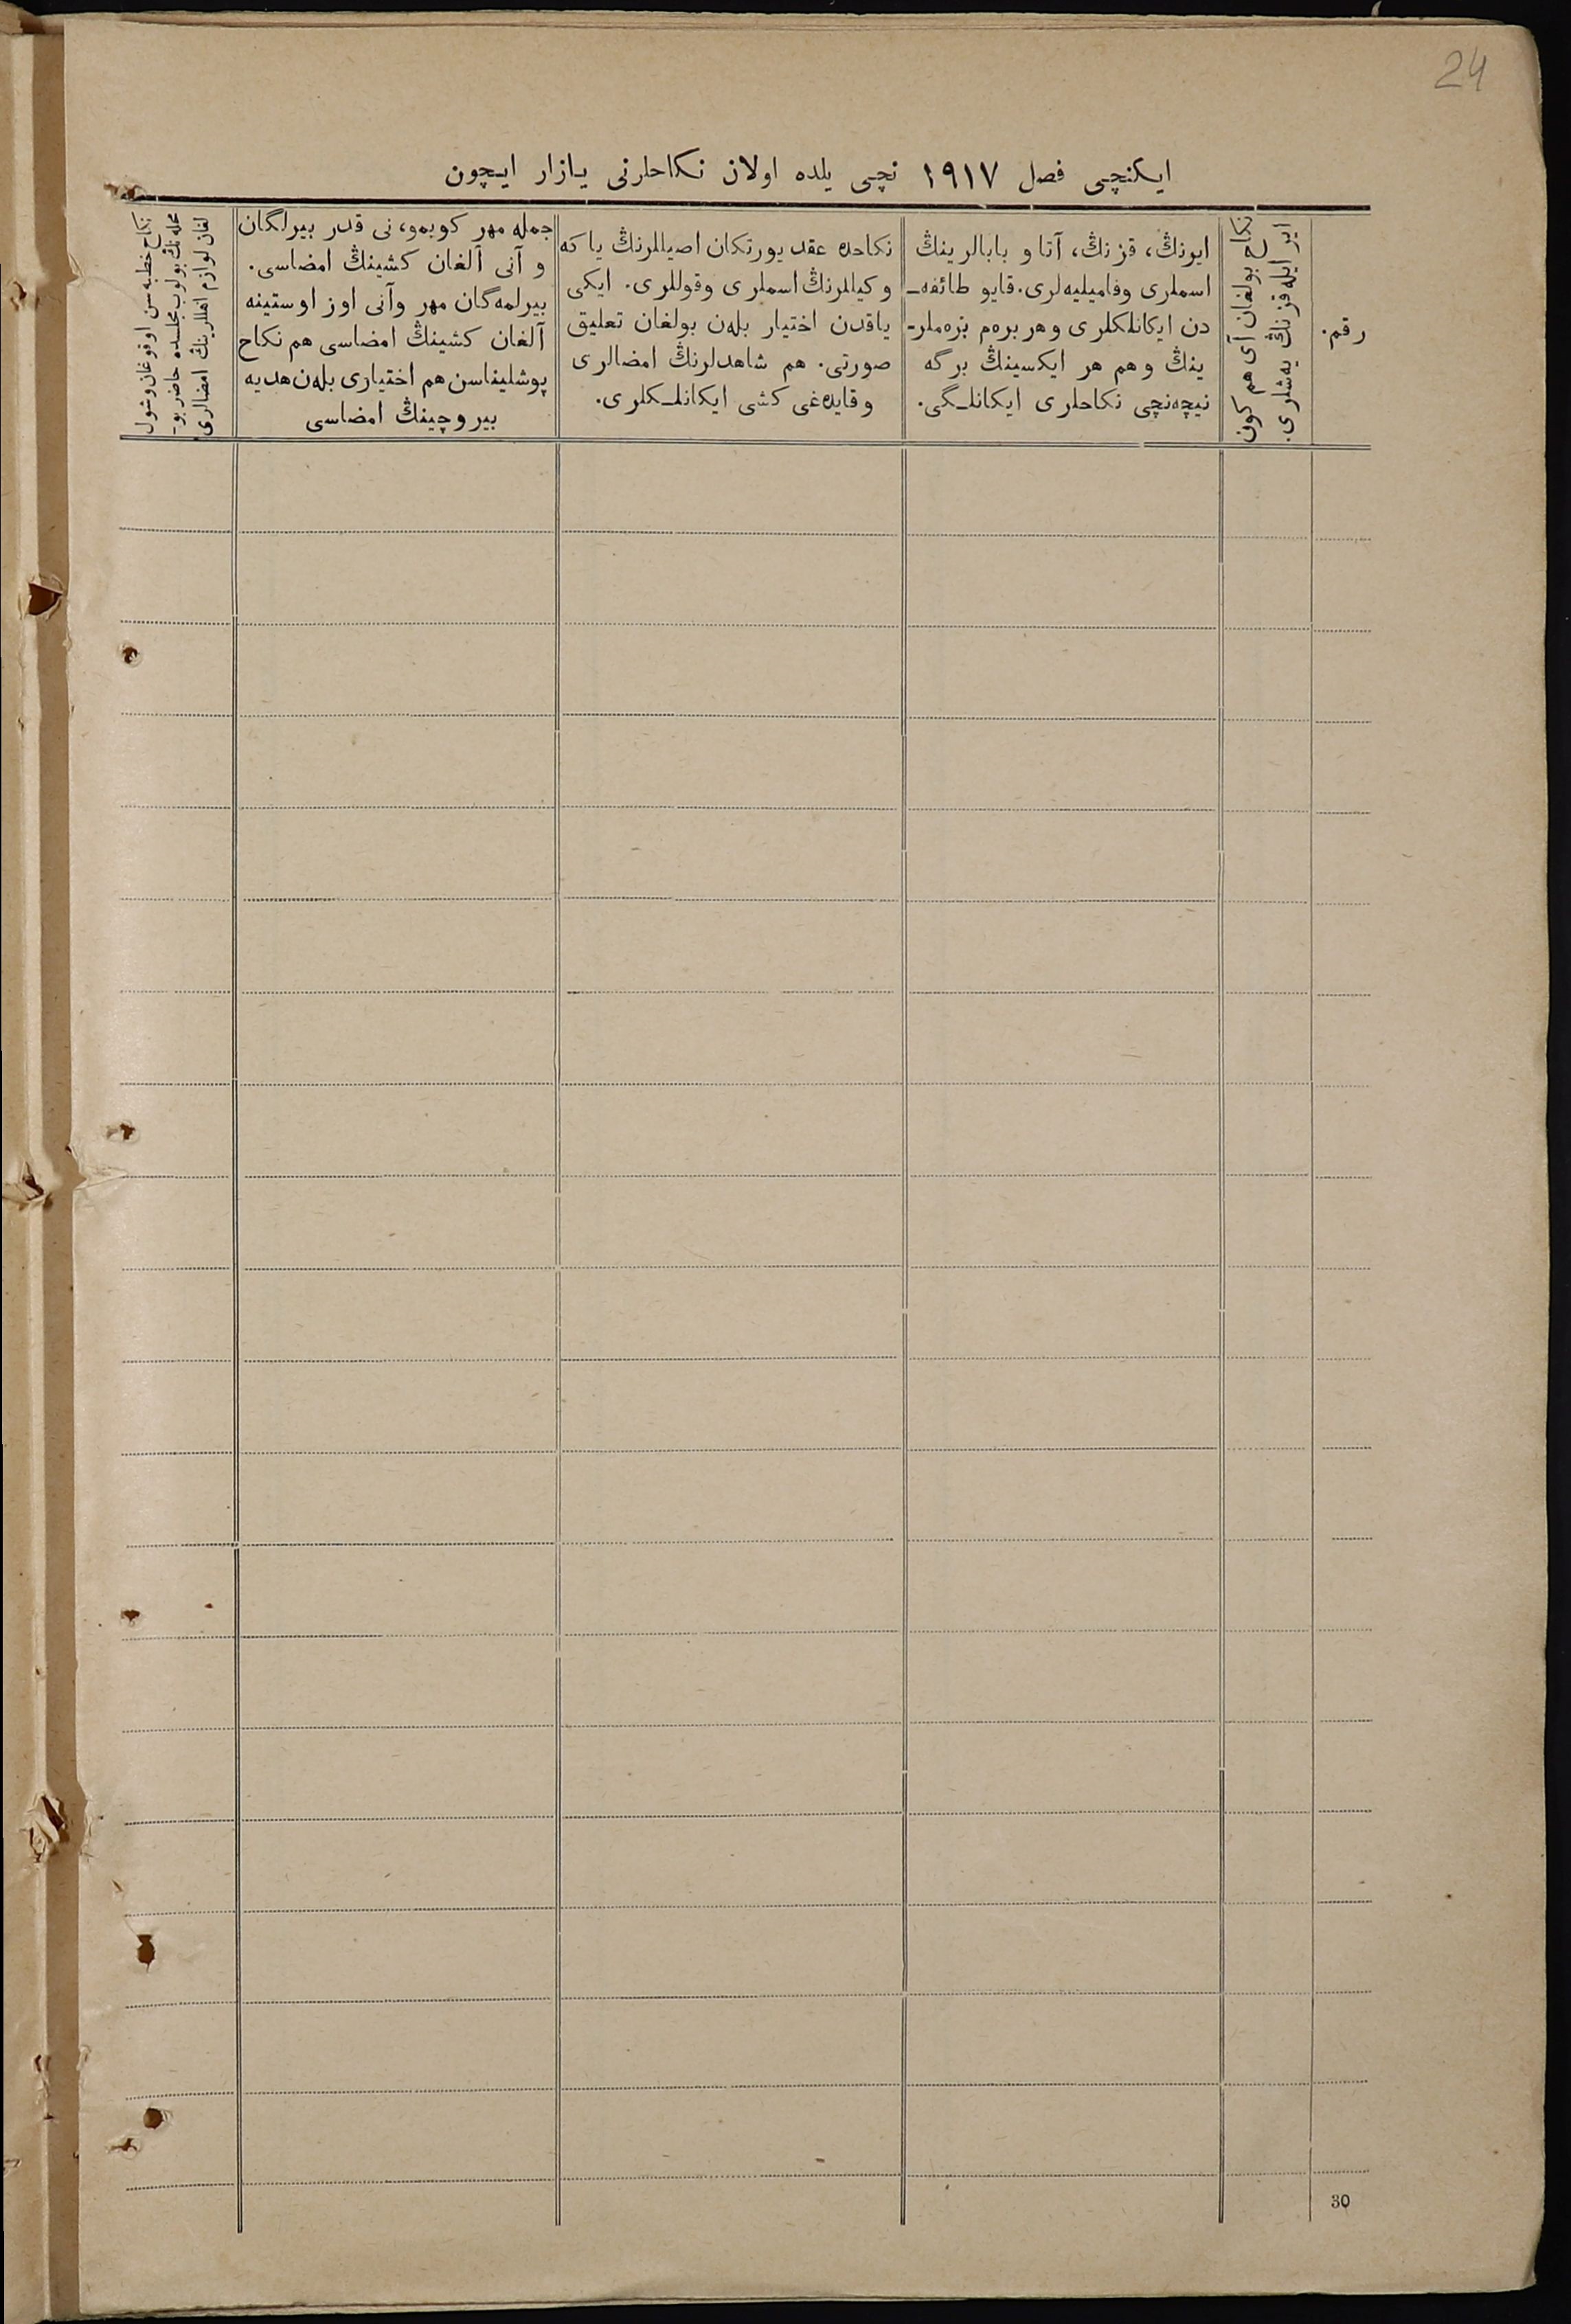 24
ایکنچی فصل ۱۹۱۷ نچی یلده اولان نکاحلرنی یازار ایچون
رقم.
ایر ایله قزنڭ یه‌شلری.
نکاح بولغان آی هم کون
ایرنڭ، قزنڭ، آتا و بابالرینڭ
اسملری وفامیلیه‌لری. قایو طائفه‌ـ
دن ایکانلکلری وهر بره‌م بزه‌ملر-
ینڭ وهم هر ایکسینڭ برگه
نیچه‌نچی نکاحلری ایکانلـگی.
نکاحده عقد یورتکان اصیللرنڭ یا که
وکیللرنڭ اسملری وقوللری. ایکی
یاقدن اختیار بله‌ن بولغان تعلیق
صورتی. هم شاهدلرنڭ امضالری
وقایده‌غی کشی ایکانلـکلری.
جمله مهر کوبمو، نی قدر بیرلگان
و آنی آلغان کشینڭ امضاسی.
بیرلمه‌گان مهر وآنی اوز اوستینه
آلغان کشینڭ امضاسی هم نکاح
پوشلیناسن هم اختیاری بله‌ن هدیه
بیروچینڭ امضاسی
نکاح خطبه سن اوقوغان وشول
محله‌نڭ بولوب مجلسده حاضر بو-
لغان لوازم اهللرینڭ امضالری
30